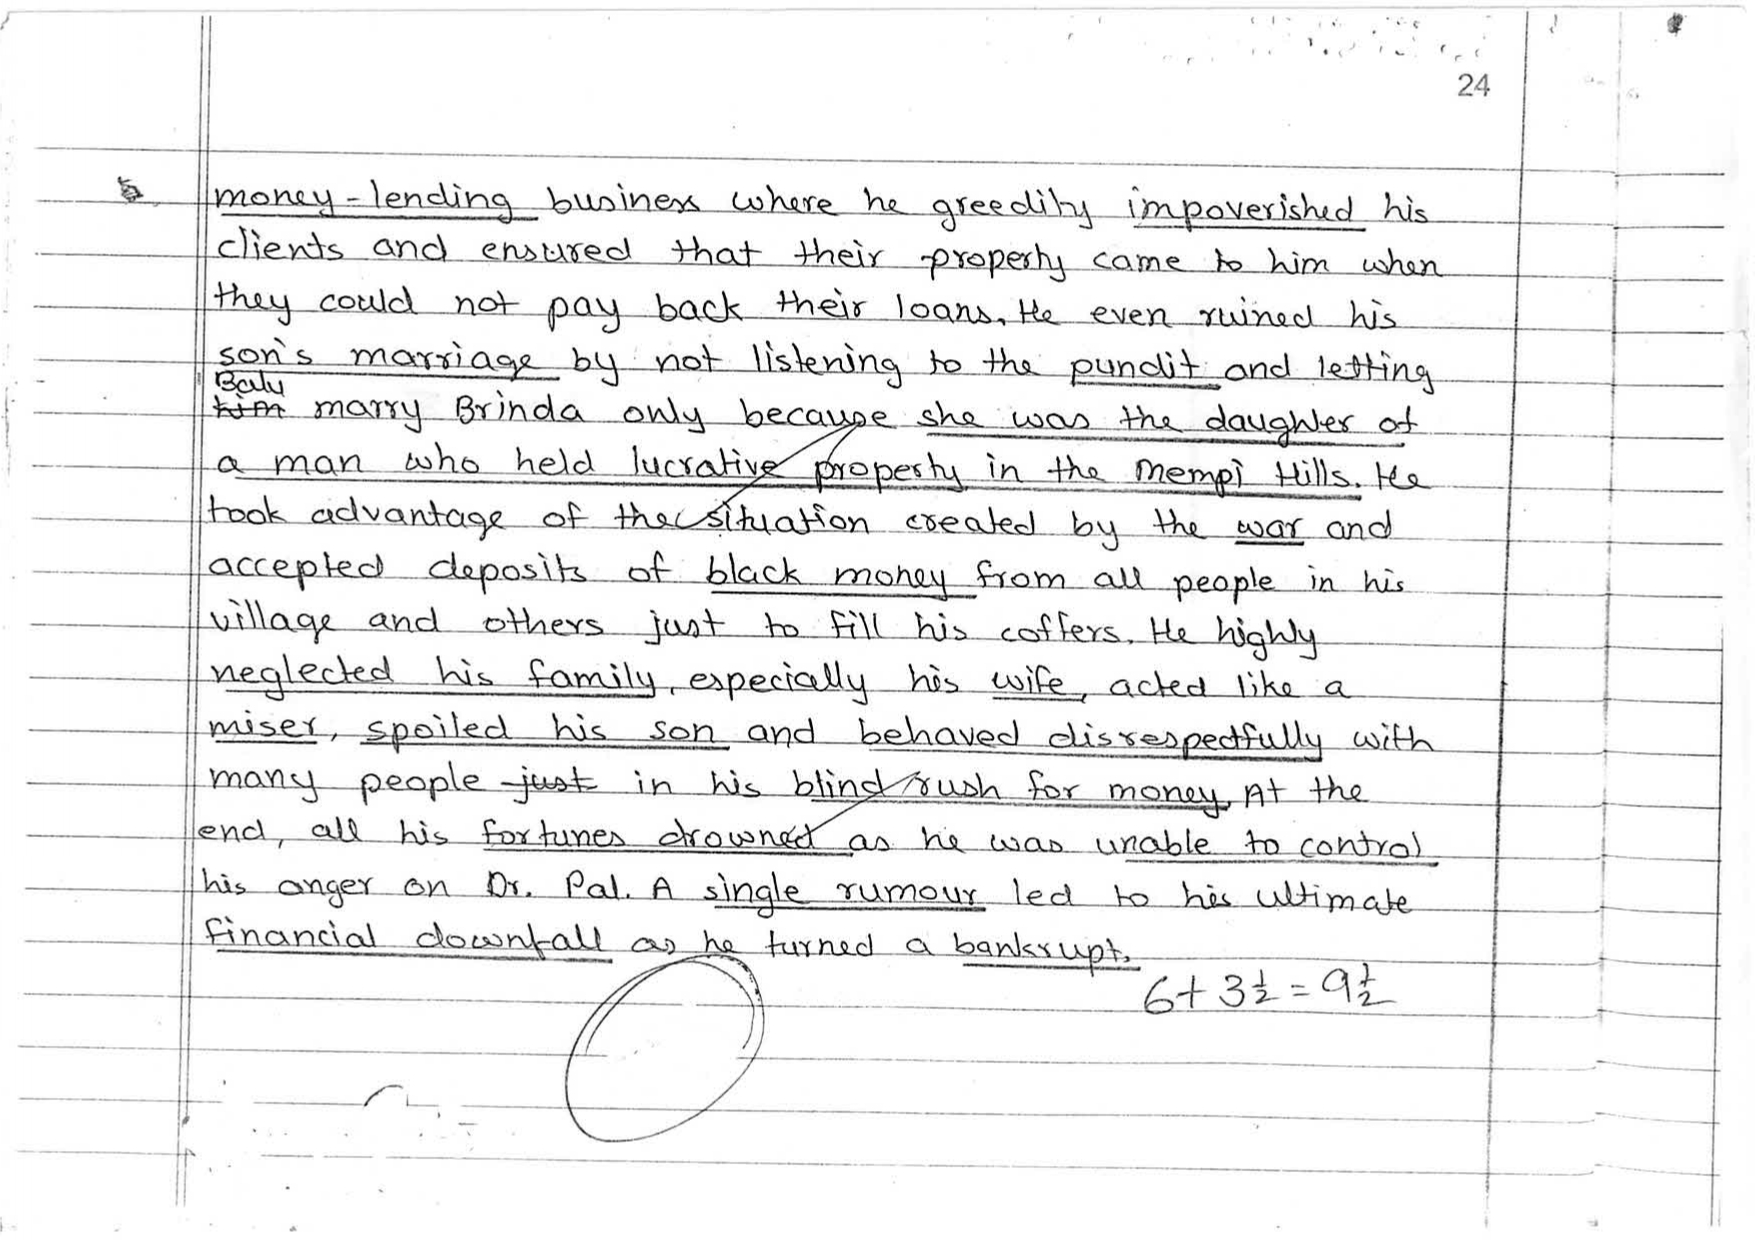 24
money-lending business where he greedily impoverished his
clients and ensured that their property came to him when
they could not pay back their loans. He even ruined his
son's marriage by not listening to the pundit and letting
Balu
him marry Brinda only because she was the daughter of
a man who held lucrative property in the Mempi Hills. He
took advantage of the situation created by the war and
accepted deposits of black money from all people in his
village and others just to fill his coffers. He highly
neglected his family, especially his wife, acted like a
miser, spoiled his son and behaved disrespectfully with
many people just in his blind rush for money. At the
end, all his fortunes drowned as he was unable to control
his anger on Dr. Pal. A single rumour led to his ultimate
financial downfall as he turned a bankrupt.
6+3½=9½